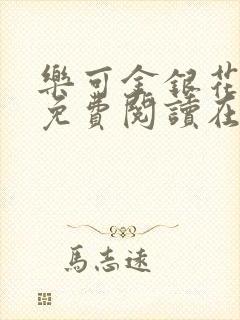 樂可金銀花
免費閱讀在
馬志遠